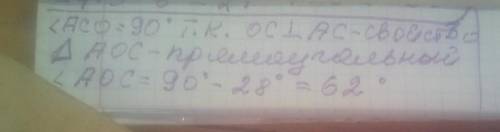 ∠ACO = 90° т.к. OC⊥AC - свойство
△ AOC - прямоугольный
∠AOC = 90° - 28° = 62°